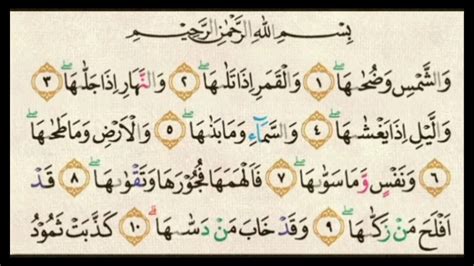 بِسْمِ اللهِ الرَّحْمٰنِ الرَّحِيْمِ
وَالشَّمْسِ وَضُحٰىهَاۖ ١ وَالْقَمَرِ اِذَا تَلٰىهَاۖ ٢ وَالنَّهَارِ اِذَا جَلّٰىهَاۖ ٣
وَالَّيْلِ اِذَا يَغْشٰىهَاۖ ٤ وَالسَّمَاۤءِ وَمَا بَنٰىهَاۖ ٥ وَالْاَرْضِ وَمَا طَحٰىهَاۖ
٦ وَنَفْسٍ وَّمَا سَوّٰىهَاۖ ٧ فَاَلْهَمَهَا فُجُوْرَهَا وَتَقْوٰىهَاۖ ٨ قَدْ
اَفْلَحَ مَنْ زَكّٰىهَاۖ ٩ وَقَدْ خَابَ مَنْ دَسّٰىهَاۗ ١٠ كَذَّبَتْ ثَمُوْدُ